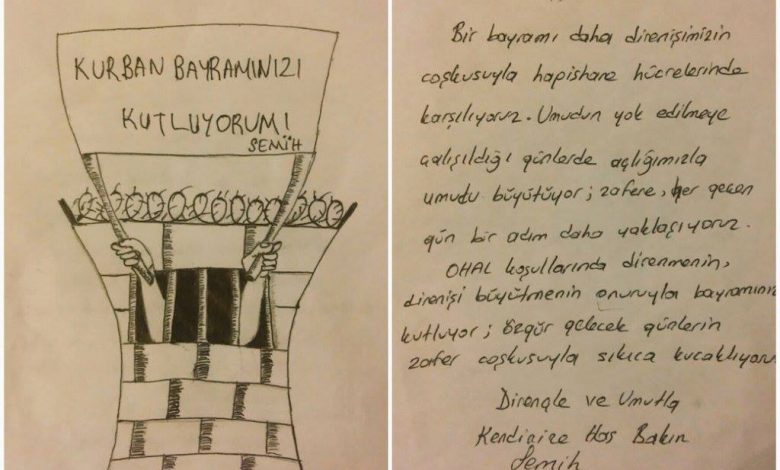 KURBAN BAYRAMINIZI
KUTLUYORUM!
SEMİH
Bir bayramı daha direnişimizin
coşkusuyla hapishane hücrelerinde
karşılıyoruz. Umudun yok edilmeye
çalışıldığı günlerde açlığımızla
umudu büyütüyor; zafere, her geçen
gün bir adım daha yaklaşıyoruz.
OHAL koşullarında direnmenin,
direnişi büyütmenin onuruyla bayramınızı
kutluyor; özgür gelecek günlerin
zafer coşkusuyla sıkıca kucaklıyorum
Dirençle ve Umutla
Kendinize Hoş Bakın
Semih